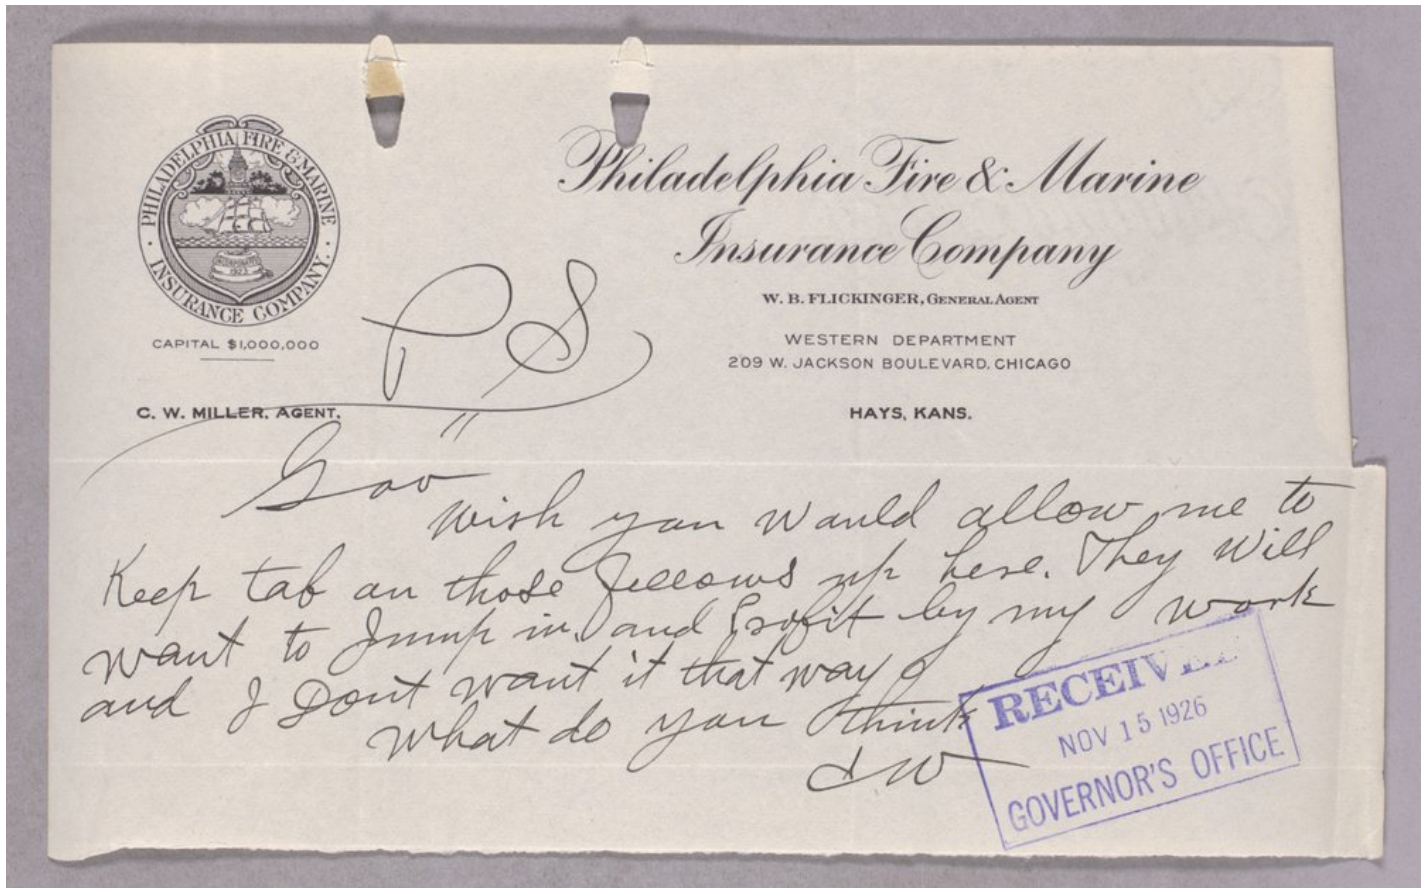 PHILADELPHIA FIRE & MARINE
INSURANCE COMPANY.
INCORPORATED
1923
CAPITAL $1,000,000
C. W. MILLER, AGENT.
Philadelphia Fire & Marine
Insurance Company
W. B. FLICKINGER, GENERAL AGENT
WESTERN DEPARTMENT
209 W. JACKSON BOULEVARD, CHICAGO
HAYS, KANS.
P S
Gov
Wish you would allow me to
Keep tab on those fellows up here. They Will
want to Jump in and Profit by my work
and I Dont want it that way
What do you think
CW
RECEIVED
NOV 15 1926
GOVERNOR'S OFFICE